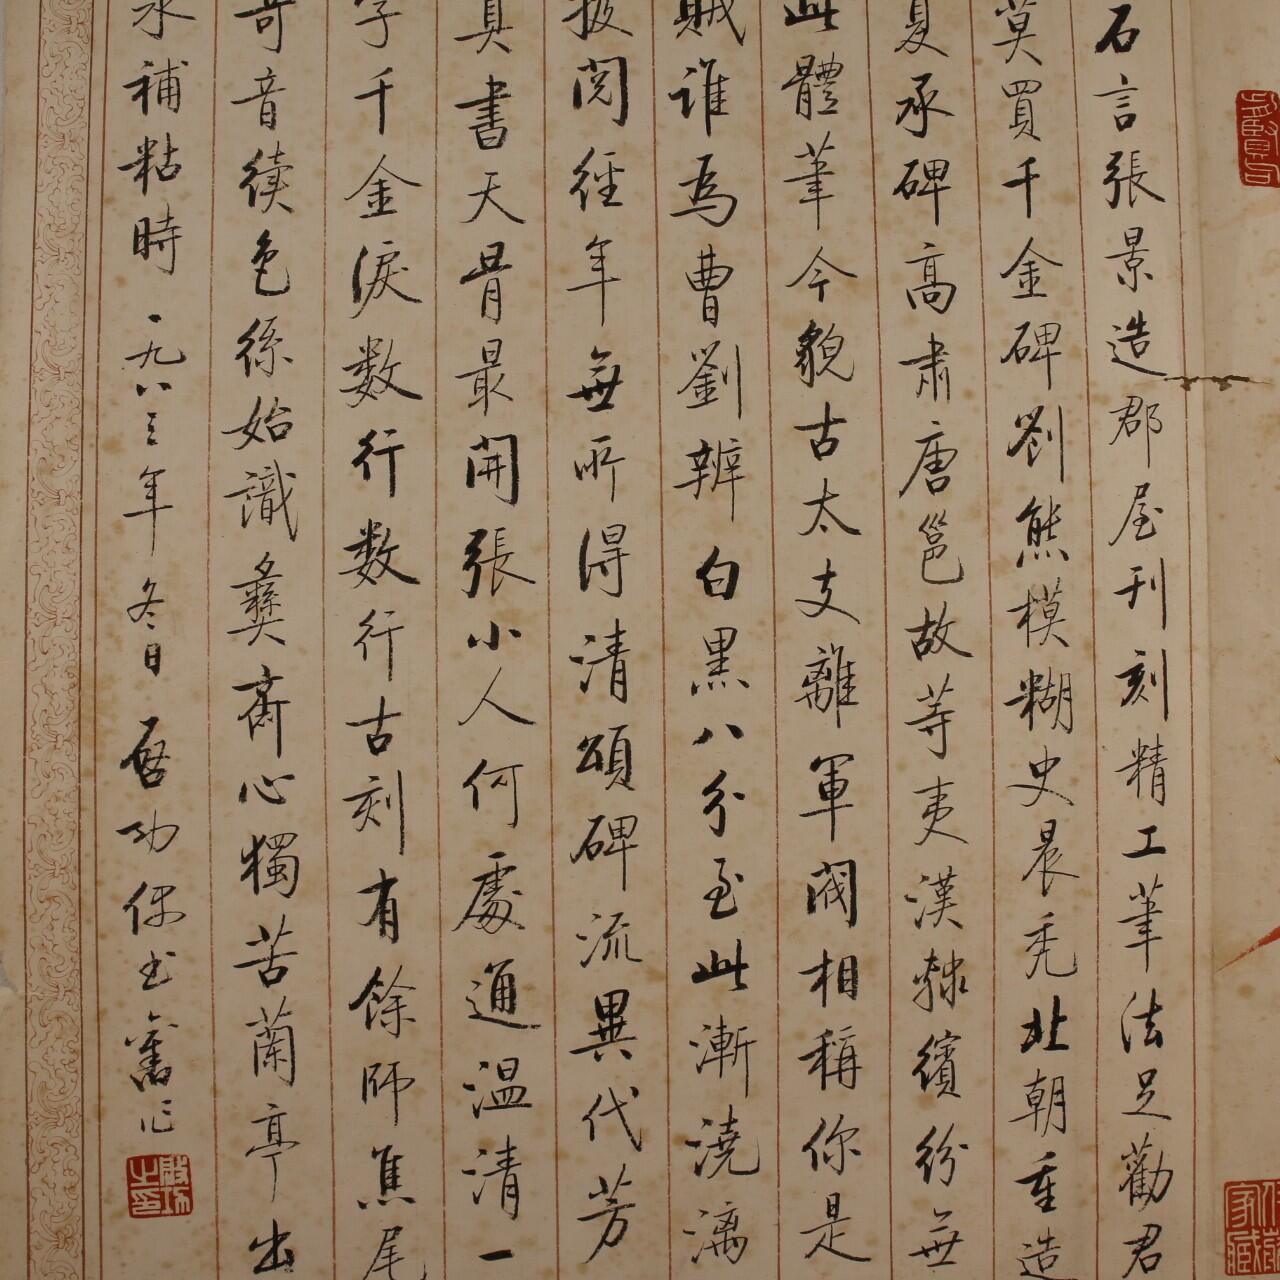 石言張景造郡屋刊刻精工筆法足勸君
莫買千金碑劉熊模糊史晨禿北朝重造
夏承碑高肅唐邕故等夷漢隸繽紛無
此體筆今貌古太支離軍閥相稱你是
賊誰為曹劉辨白黑八分至此漸澆漓
披閱經年無所得清頌碑流異代芳
真書天骨最開張小人何處通溫清一
字千金淚數行數行古刻有餘師焦尾
奇音續色絲始識彝齋心獨苦蘭亭出
水補粘時一九八三年冬日啟功偶書舊作
啟功之印